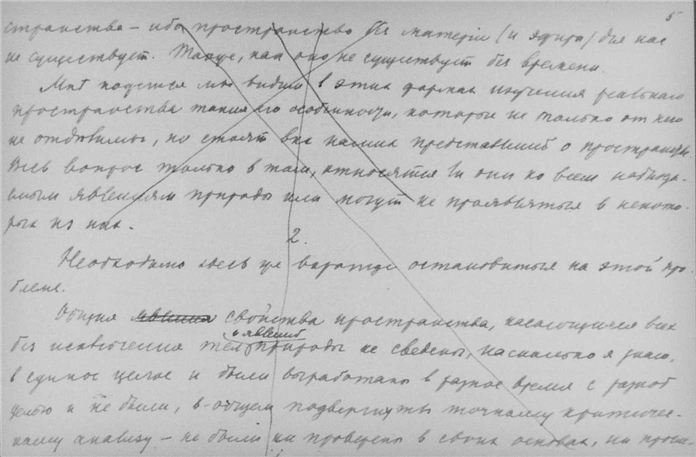 5
странства – ибо пространство без материи (и эфира) для нас
не существует. Также, как оно не существует без времени.
Мне кажется мы видим в этих формах изучения реального
пространства такия его особенности, которые не только от него
не отделимы, но стоят вне наших представлений о пространстве.
Весь вопрос только в том, относятся ли они ко всем наблюда-
емым явлениям природы или могут не проявляться в некото-
рых из них.
2.
Необходимо здесь же вкратце остановиться на этой про-
блеме.
Общия явления свойства пространства, касающияся всех
без исключения тел и явлений природы не сведены, насколько я знаю,
в единое целое и были выработаны в разное время с разной
целью и не были, в общем подвергнуты точному критичес-
кому анализу – не были ни проведены в своих основах, ни